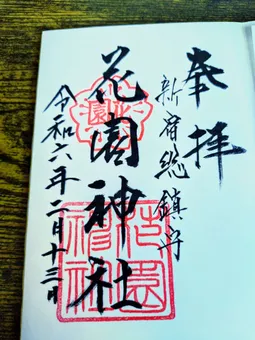 奉拝
新宿総鎮守
花園神社
令和六年二月十三日
花園神社